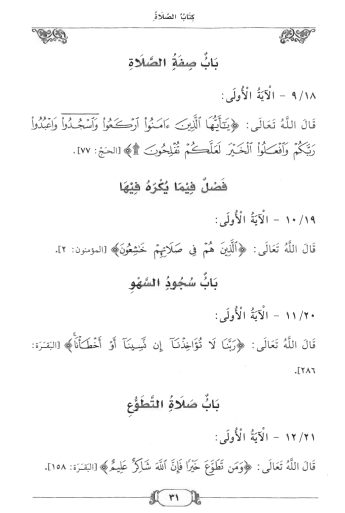 كِتَابُ الصَّلَاةِ
بَابُ صِفَةُ الصَّلَاةِ
٩/١٨ - الْآيَةُ الْأُولَى:
قَالَ اللَّهُ تَعَالَى: ﴿يَٰٓأَيُّهَا ٱلَّذِينَ ءَامَنُوا۟ ٱرْكَعُوا۟ وَٱسْجُدُوا۟ وَٱعْبُدُوا۟
رَبَّكُمْ وَٱفْعَلُوا۟ ٱلْخَيْرَ لَعَلَّكُمْ تُفْلِحُونَ ۩﴾ [الحَجّ: ٧٧].
فَصْلٌ فِيمَا يُكْرَهُ فِيهَا
١٠/١٩ - الْآيَةُ الْأُولَى:
قَالَ اللَّهُ تَعَالَى: ﴿ٱلَّذِينَ هُمْ فِى صَلَاتِهِمْ خَٰشِعُونَ﴾ [المؤمنون: ٢].
بَابُ سُجُودِ السَّهْوِ
١١/٢٠ - الْآيَةُ الْأُولَى:
قَالَ اللَّهُ تَعَالَى: ﴿رَبَّنَا لَا تُؤَاخِذْنَآ إِن نَّسِينَآ أَوْ أَخْطَأْنَا﴾ [البَقَرَة:
٢٨٦].
بَابُ صَلَاةِ التَّطَوُّعِ
١٢/٢١ - الْآيَةُ الْأُولَى:
قَالَ اللَّهُ تَعَالَى: ﴿وَمَن تَطَوَّعَ خَيْرًا فَإِنَّ ٱللَّهَ شَاكِرٌ عَلِيمٌ﴾ [البَقَرَة: ١٥٨].
٣١